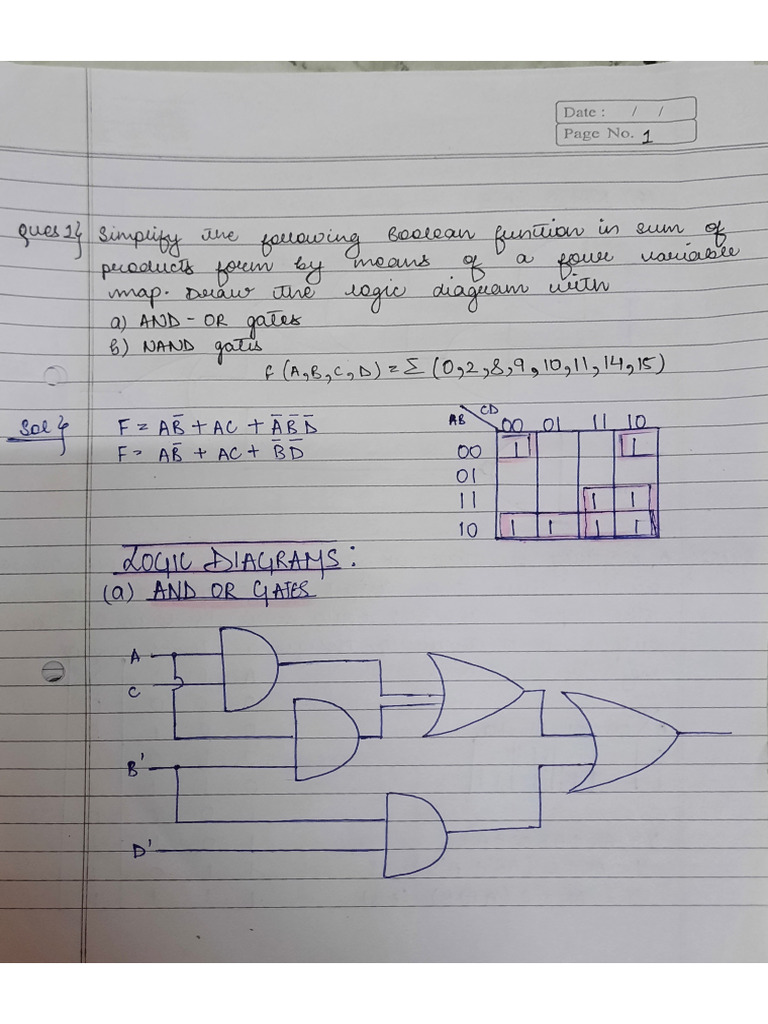 Date : / /
Page No. 1
Ques 1} Simplify the following Boolean function in sum of
products form by means of a four variable
map. Draw the logic diagram with
a) AND - OR gates
b) NAND gates
F (A,B,C,D) = Σ (0,2,8,9,10,11,14,15)
Sol} F = AB̄ + AC + ĀB̄D̄
F = AB̄ + AC + B̄D̄
AB CD 00 01 11 10
00 1 1
01
11 1 1
10 1 1 1 1
LOGIC DIAGRAMS :
(a) AND OR GATES
A
C
B'
D'